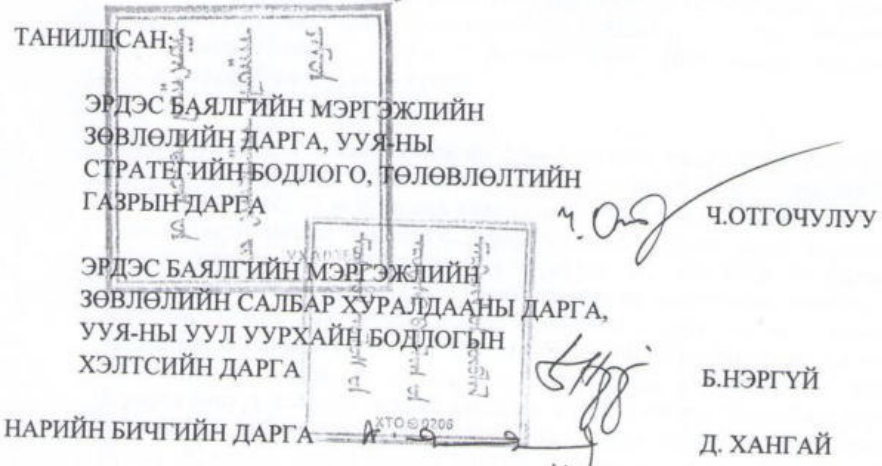 ТАНИЛЦСАН:
ЭРДЭС БАЯЛГИЙН МЭРГЭЖЛИЙН
ЗӨВЛӨЛИЙН ДАРГА, УУЯ-НЫ
СТРАТЕГИЙН БОДЛОГО, ТӨЛӨВЛӨЛТИЙН
ГАЗРЫН ДАРГА
Ч.ОТГОЧУЛУУ
ЭРДЭС БАЯЛГИЙН МЭРГЭЖЛИЙН
ЗӨВЛӨЛИЙН САЛБАР ХУРАЛДААНЫ ДАРГА,
УУЯ-НЫ УУЛ УУРХАЙН БОДЛОГЫН
ХЭЛТСИЙН ДАРГА
Б.НЭРГҮЙ
НАРИЙН БИЧГИЙН ДАРГА
Д. ХАНГАЙ